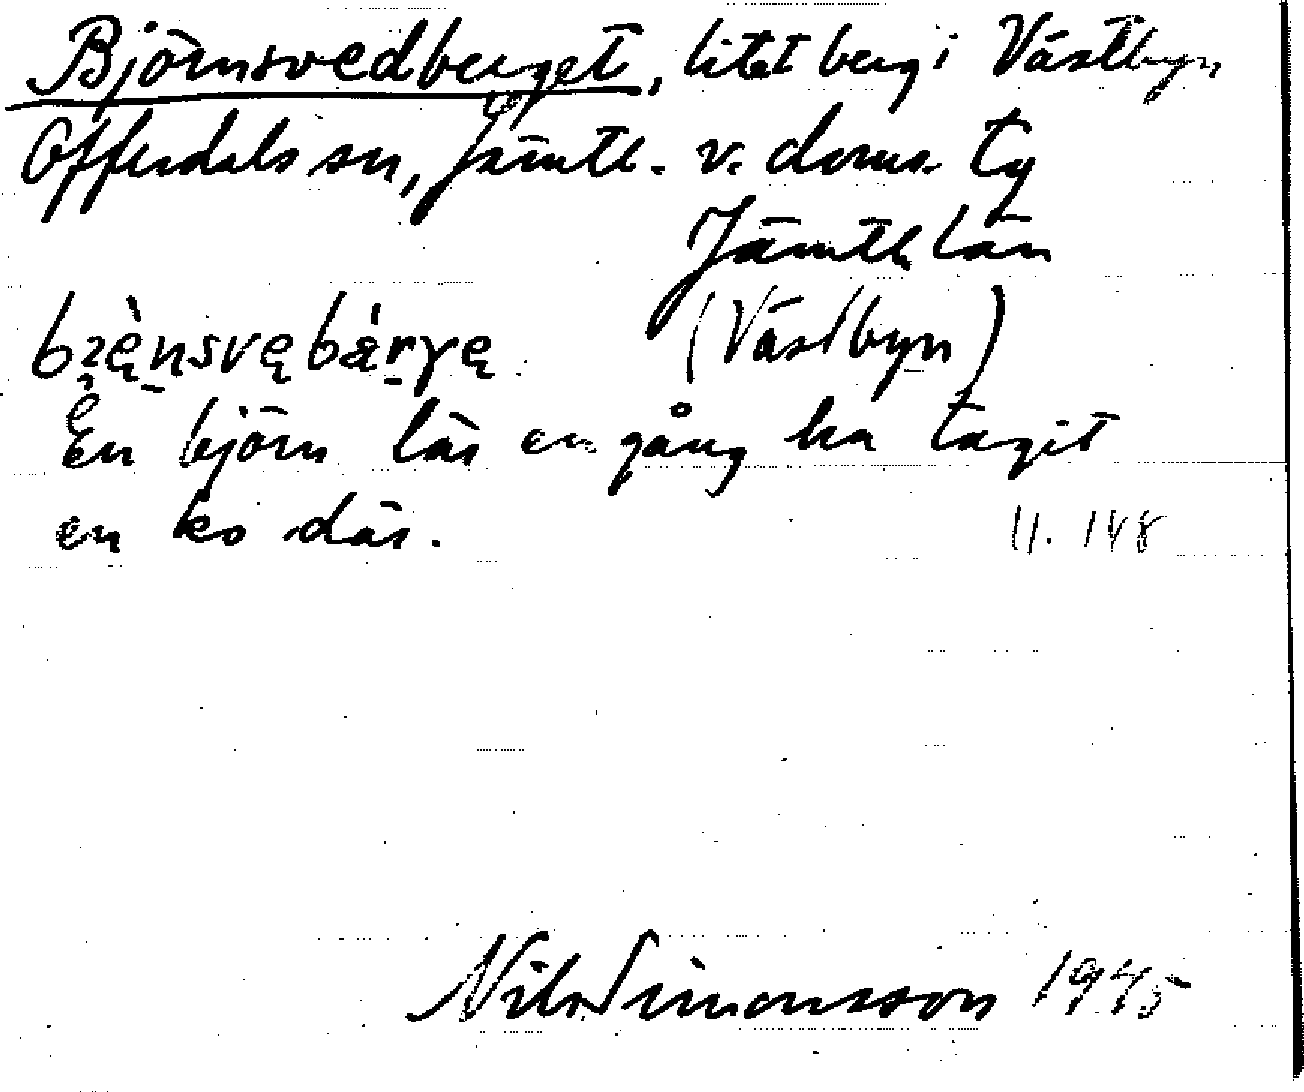 Björnsvedberget, litet berg i Västbyn
Offerdals sn, Jämtl. v. doms. tg
Jämtl. län
bʒę̀nsvębǽrγę (Västbyn)
En björn lär en gång ha tagit
en ko där. 11. 148
Nils Simonsson 1945